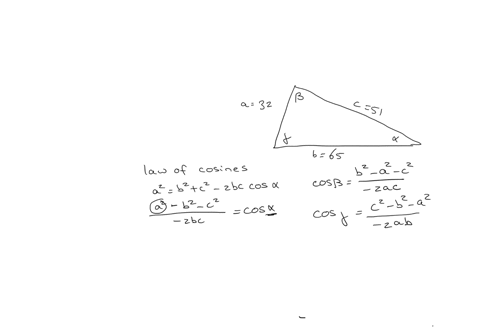 a = 32
β
c = 51
γ
α
b = 65
law of cosines
a² = b² + c² - 2bc cos α
(a² - b² - c²) / (-2bc) = cos α
cos β = (b² - a² - c²) / (-2ac)
cos γ = (c² - b² - a²) / (-2ab)